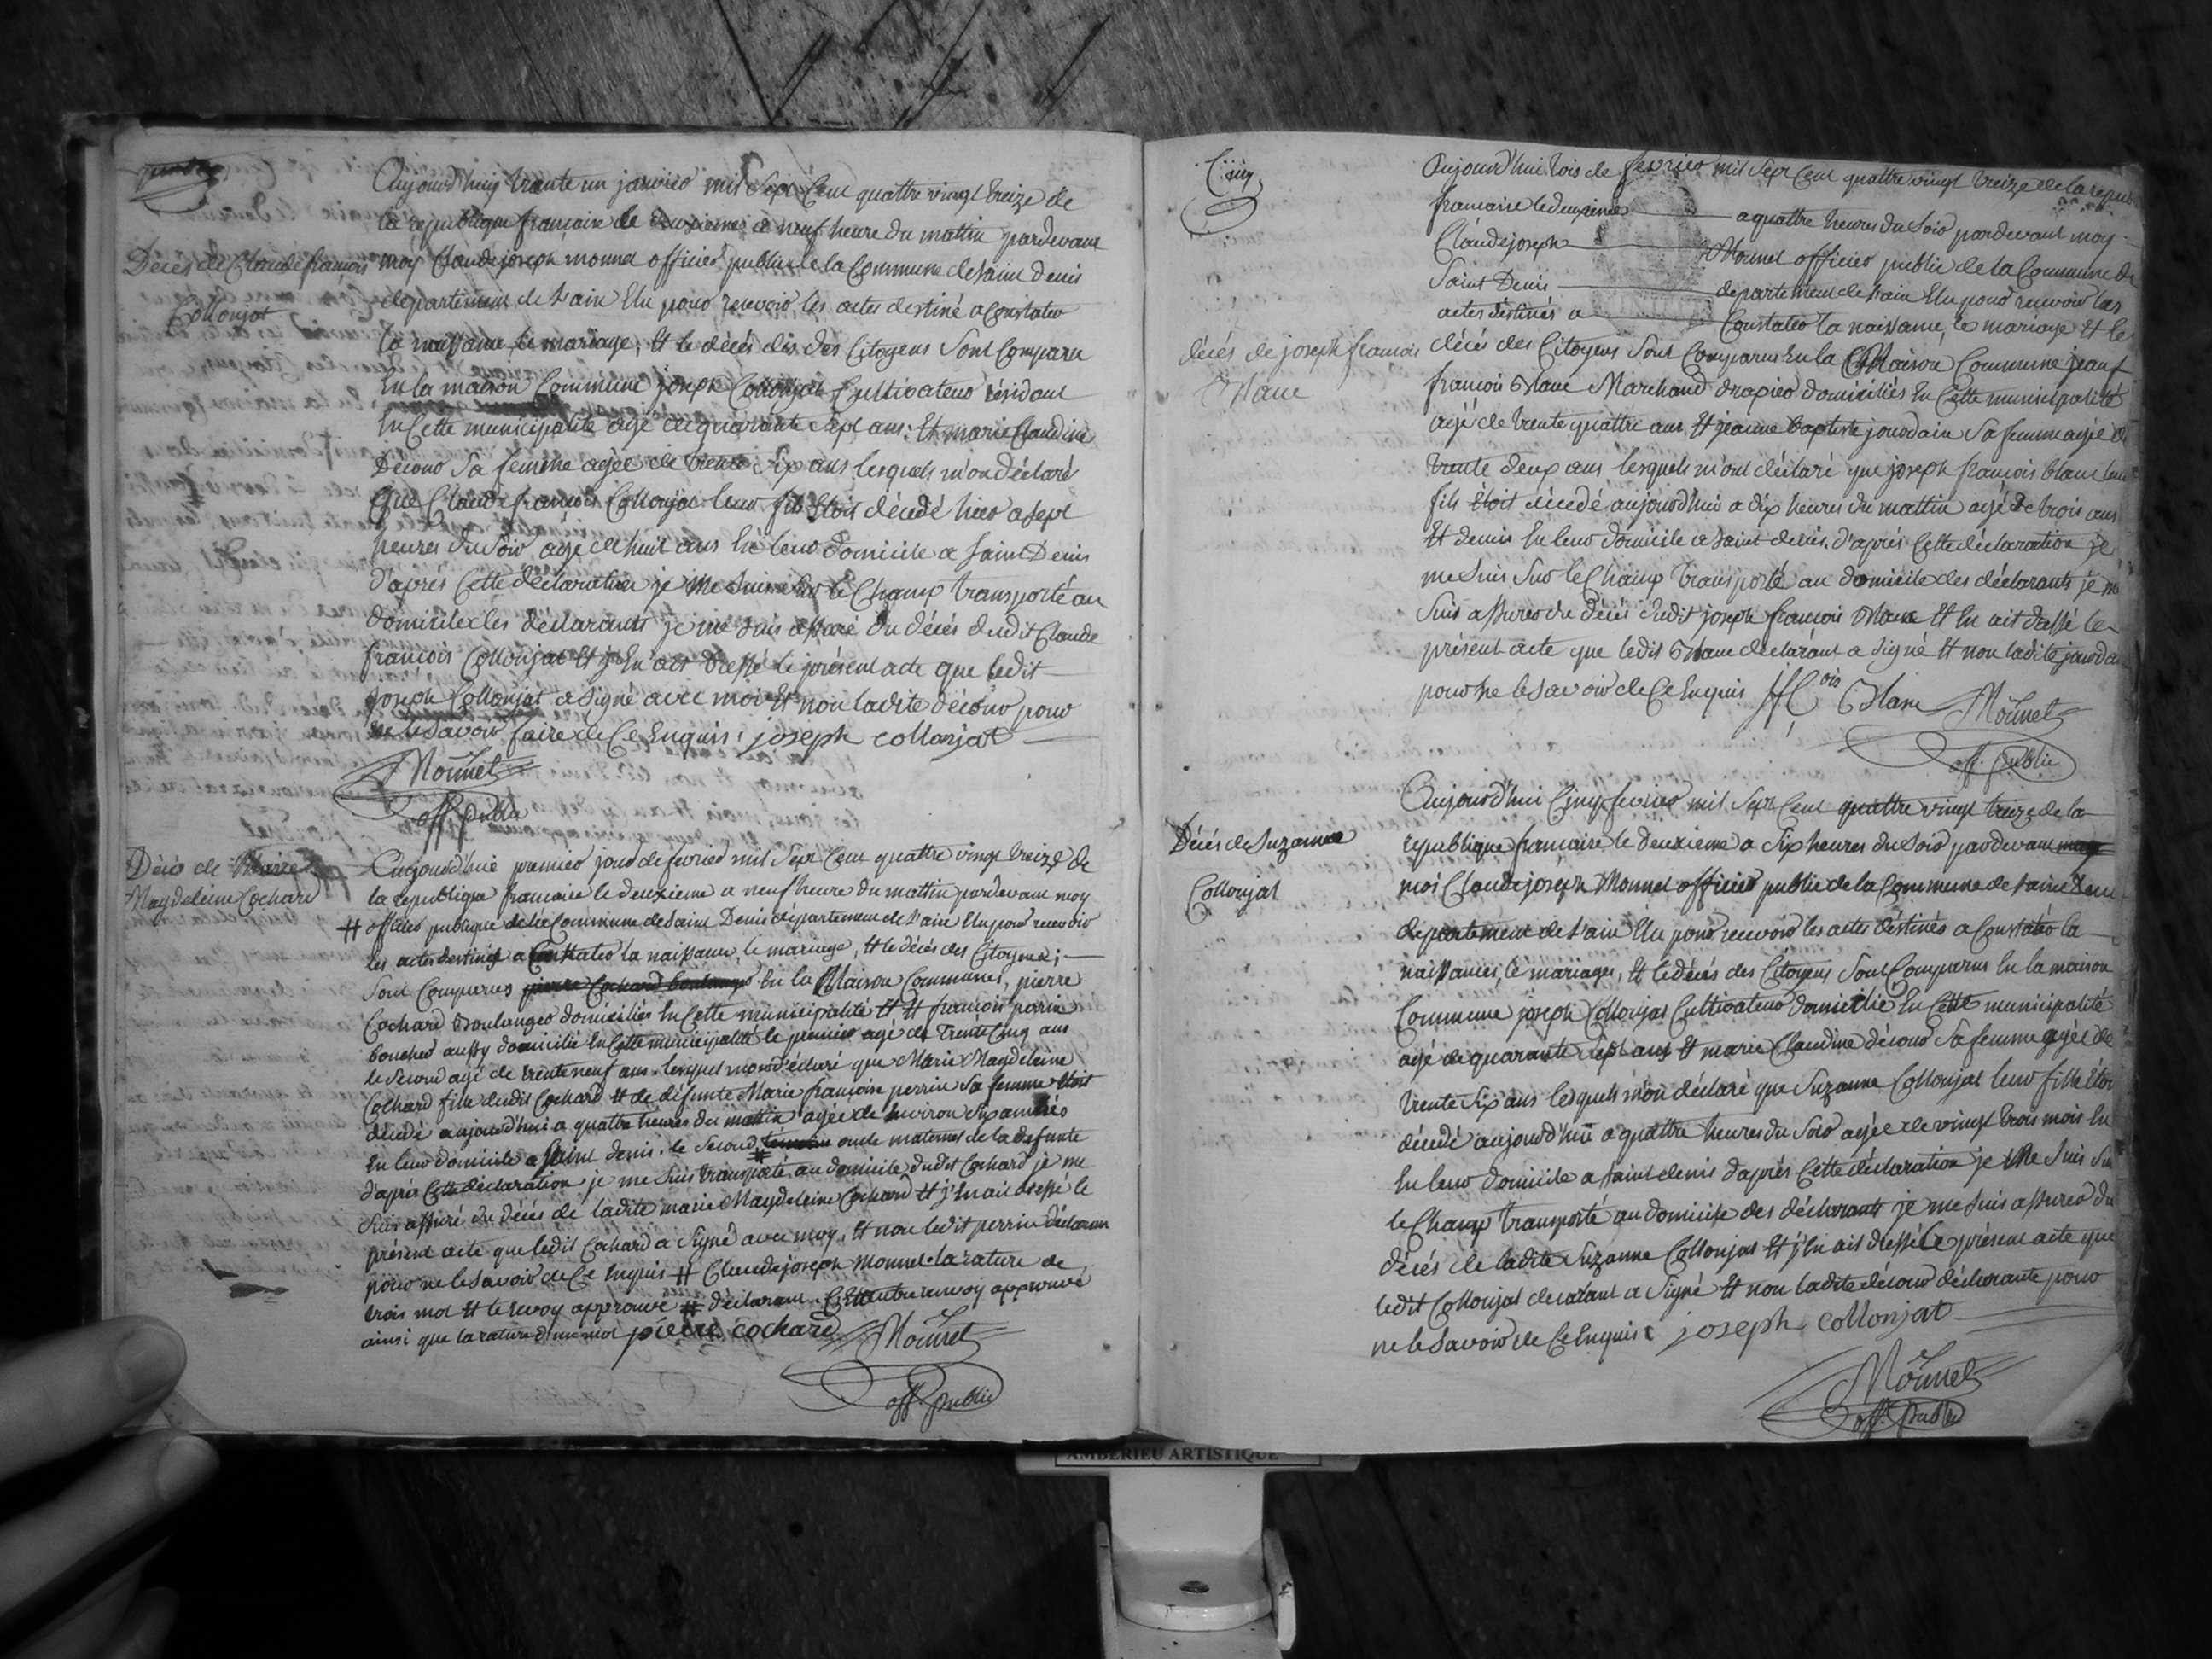 quatre
Décés de Claude françois
Collonjat
Aujourd'huy trante un janvier mil Sept Cent quattre vingt treize de
la république françaises le deuxieme a neuf heure du mattin pardevant
moy Claude joseph monnet officier public de la Commune de saint denis
departement de L'ain Elu pour recevoir les actes destiné a Constater
la naissance le mariage, Et le décés des Citoyens Sont Comparu
En la maison Commune joseph Collonjat Cultivateur résidant
En Cette municipalité agé de quarante Sept ans. Et marie Claudine
Décour Sa femme agée de trente Six ans lesquels m'on déclaré
que Claude françois Collonjat leur fils Etois décédé hier a Sept
heures du Soir agé de huit ans En leur domicile a Saint Denis
d'après Cette déclaration je me suis sur le Champ transporté au
domicile des déclarants je me suis assuré du décés dudit Claude
françois Collonjat Et j'En ait dressé le présent acte que ledit
Joseph Collonjat a Signé avec moi Et non ladite décour pour
ne le savoir faire de Ce Enquis : joseph collonjat
Monnet
off. public
Décés de Marie
Magdeleine Cochard
Aujourd'hui premier jour de fevrier mil Sept Cent quattre vingt treize de
la republique francaise le deuxieme a neuf heure du mattin pardevant moy
# officier publique de la Commune de Saint Denis département de L'ain Elu pour recevoir
les actes destinés a Constater la naissance, le mariage, Et le décés des Citoyens ;
Sont Comparus pierre Cochard boulanger En la Maison Commune, pierre
Cochard Boulanger domiciliés En Cette municipalité Et Et françois perrin
boucher aussy domicilié En Cette municipalité le premier agé de Trente Cinq ans
le Second agé de trente neuf ans. lesquel mon déclaré que Marie Magdeleine
Cochard fille dudit Cochard Et de défunte Marie françoise perrin Sa femme Etoit
décédé aujourd'hui a quattre heures du mattin agée de Environ Six années
En leur domicile a Saint denis. le Second # oncle maternel de la défunte
d'après Cette déclaration je me suis transporté au domicile dudit Cochard je me
Suis assuré du décés de ladite marie Magdeleine Cochard Et j'En ait dressé le
présent acte que ledit Cochard a Signé avec moy, Et non ledit perrin déclarant
pour ne le Savoir de Ce Enquis # Claude joseph Monnet. la rature de
trois mot Et le renvoy approuvé # déclarant. Et l'autre renvoy approuvé
ainsi que la rature d'un mot pierre cochard Monnet
off. public
Cinq
décés de joseph françois
Blanc
Aujourd'hui trois de fevrier mil Sept Cent quattre vingt treize de la repub
francaise le deuxieme a quattre heures du Soir pardevant moy
Claude joseph Monnet officier public de la Commune de
Saint Denis departement de L'ain Elu pour recevoir les
actes déstinés a Constater la naissance, le mariage Et le
décés des Citoyens Sont Comparus En la Maison Commune jean f
françois Blanc Marchand drapier domiciliés En Cette municipalité
agé de trente quattre ans Et jeanne baptiste jourdain Sa femme agée de
trente deux ans lesquels m'ont déclaré que joseph françois blanc leur
fils Etoit décédé aujourd'hui a dix heures du mattin agé de trois ans
Et demis En leur domicile a Saint denis. d'après Cette déclaration je
me Suis Sur le Champ transporté au domicile des déclarants je me
Suis assurer du décés dudit joseph françois Blanc Et En ait dressé le
présent acte que ledit Blanc declarant a Signé Et non ladite jourdain
pour ne le Savoir de Ce Enquis Blanc Monnet
off. public
Décés de Suzanne
Collonjat
Aujourd'hui Cinq fevrier mil Sept Cent quattre vingt treize de la
republique francaise le deuxieme a Six heures du Soir pardevant moy
moi Claude joseph Monnet officier public de la Commune de saint Denis
departement de L'ain Elu pour recevoir les actes déstinés a Constater la
naissances, le mariages, Et le décés des Citoyens Sont Comparus En la maison
Commune joseph Collonjat Cultivateur domicilié En Cette municipalité
agé de quarante Sept ans Et marie Claudine décour Sa femme agée de
trente Six ans lesquels m'on déclaré que Suzanne Collonjat leur fille Etoi
décédé aujourd'hui a quattre heures du Soir agée de vingt trois mois En
En leur domicile a Saint denis d'après Cette déclaration je Me Suis Sur
le Champ transporté au domicile des déclarants je me suis assurer du
décés de ladite Suzanne Collonjat Et j'En ait dressé le présent acte que
ledit Collonjat declarant a Signé Et non ladite décour déclarante pour
ne le Savoir de Ce Enquis : joseph collonjat
Monnet
off. public
AMBERIEU ARTISTIQUE